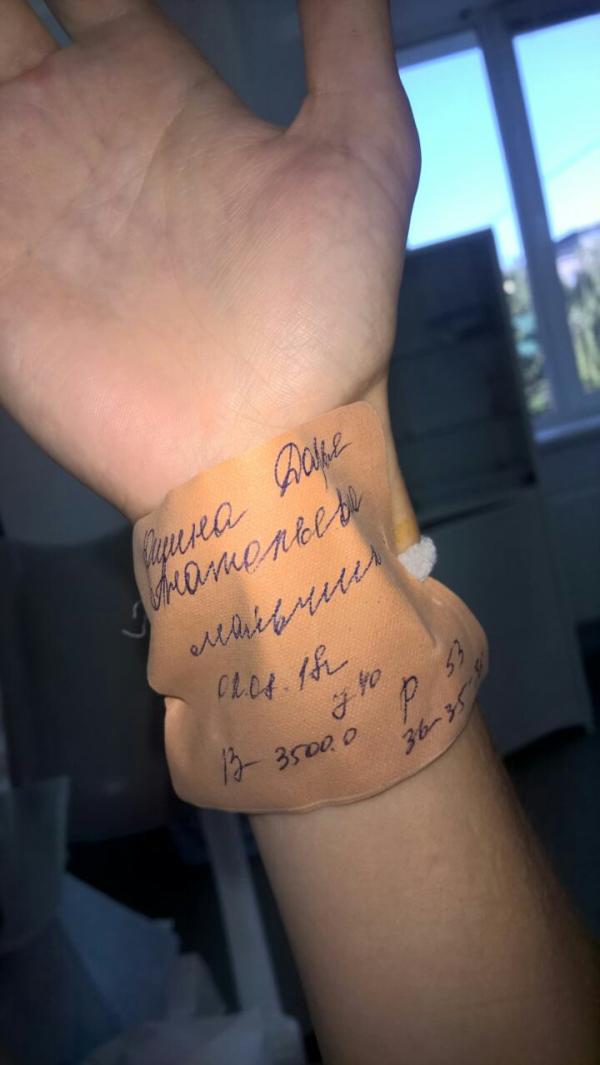 Дарье
Анатольевна
мальчик
02.08.18г
ч 40 р 53
В- 3500.0 36-35-